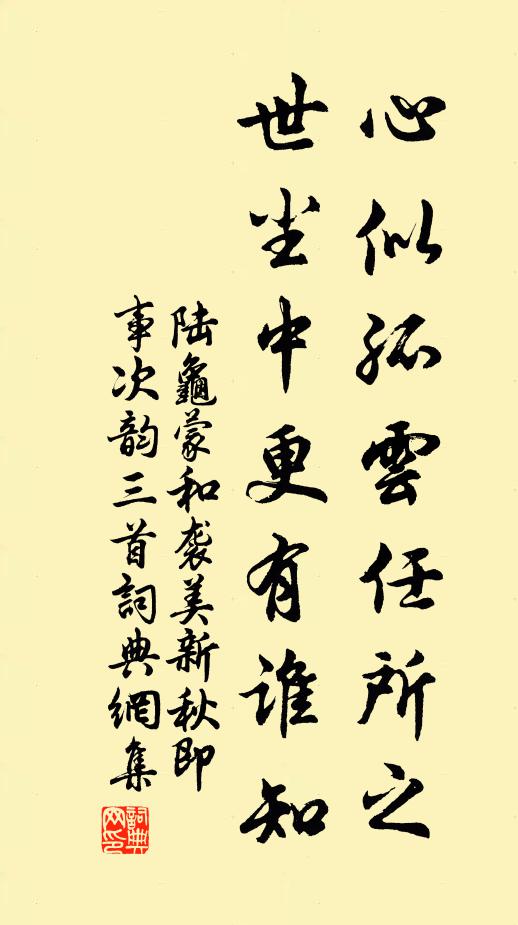 心似孤雲任所之
世尘中更有谁知
陆龜蒙和袭美新秋即
事次韵三首詞典網集
詞典
网印